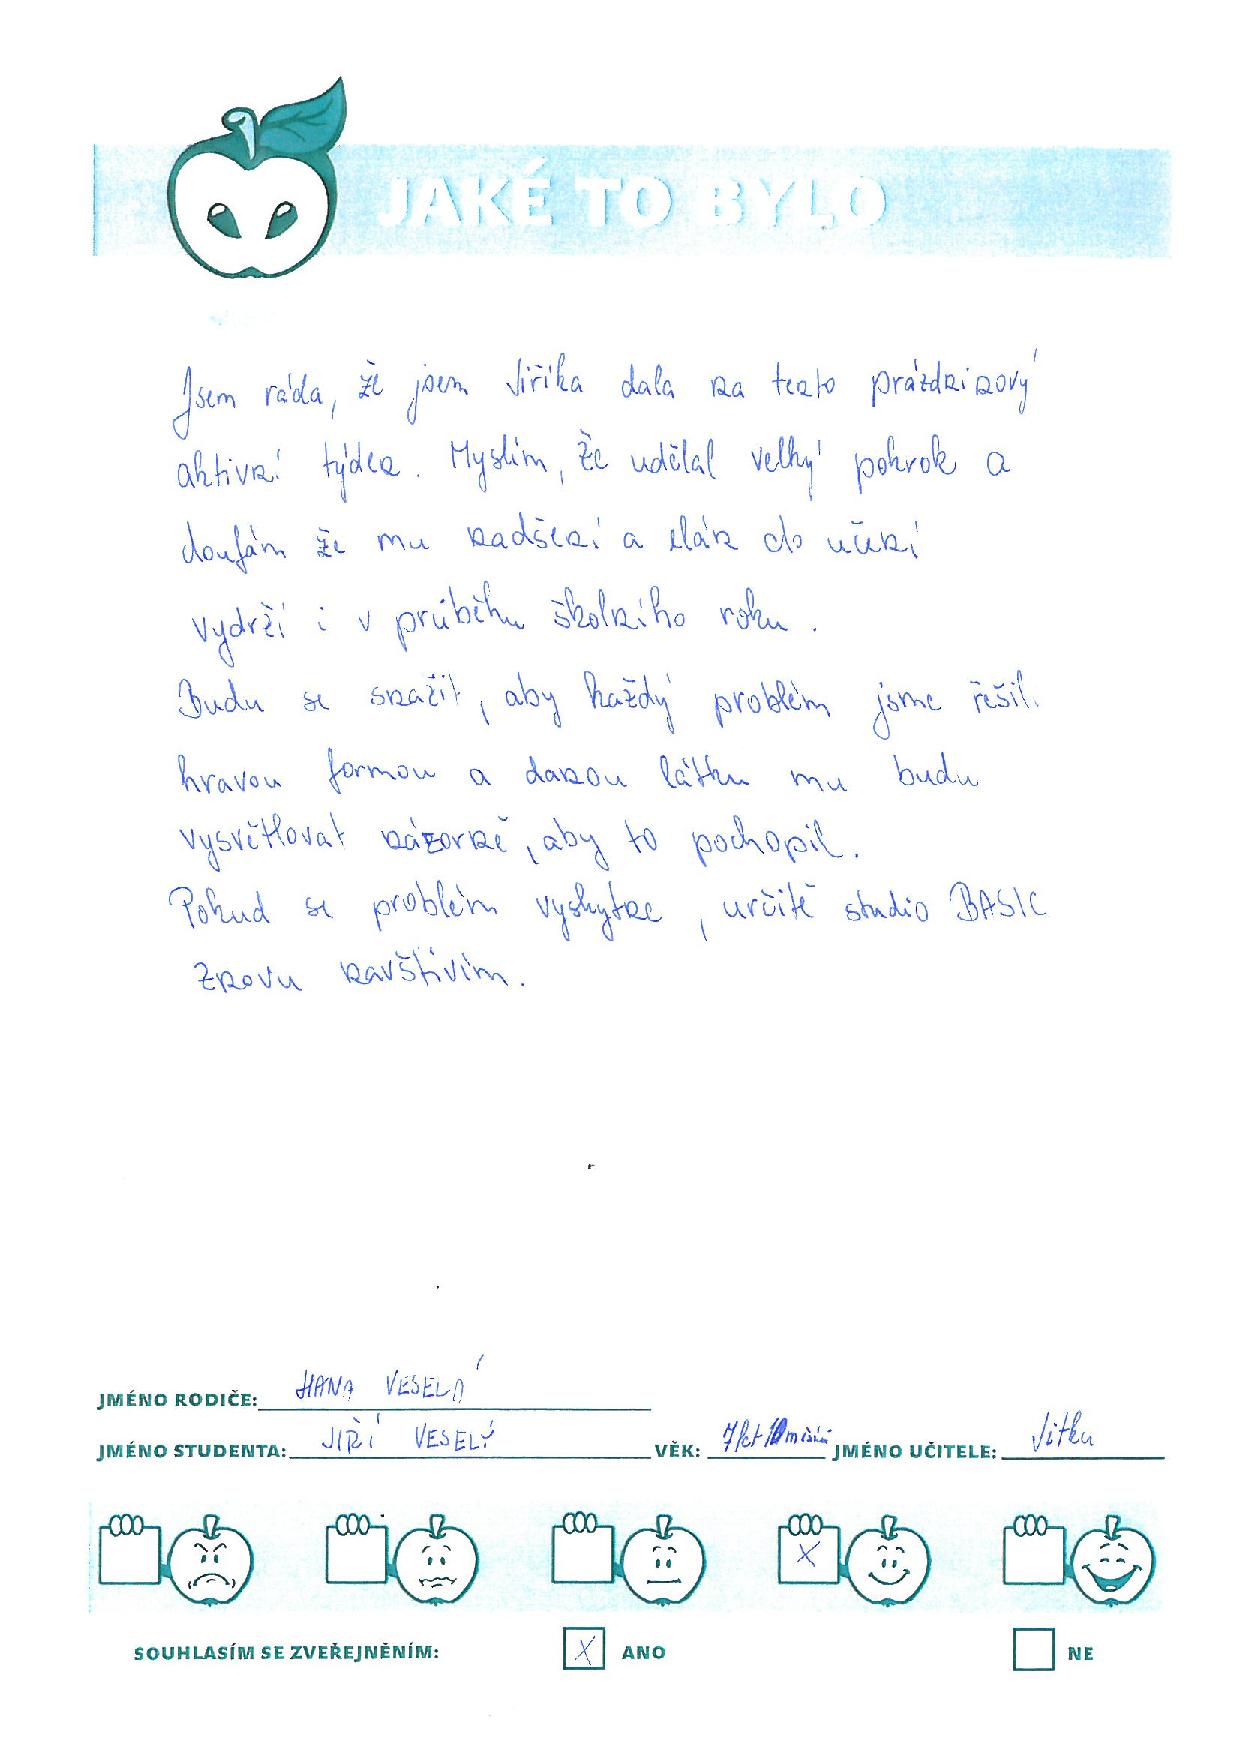 JAKÉ TO BYLO
Jsem ráda, že jsem Jiříka dala na tento prázdninový
aktivní týden. Myslím, že udělal velký pokrok a
doufám že mu nadšení a elán do učení
vydrží i v průběhu školního roku.
Budu se snažit, aby každý problém jsme řešili
hravou formou a danou látku mu budu
vysvětlovat názorně, aby to pochopil.
Pokud se problém vyskytne, určitě studio BASIC
znovu navštívím.
JMÉNO RODIČE: HANA VESELÁ
JMÉNO STUDENTA: JIŘÍ VESELÝ VĚK: 7 let/10 měsíců JMÉNO UČITELE: Jitka
X
SOUHLASÍM SE ZVEŘEJNĚNÍM: X ANO NE